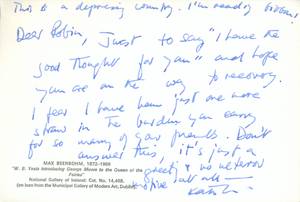 This is a depressing country. I'm reading
Dear Robin, Just to say "I have the
good thought for you" and hope
you are on the way to recovery.
I fear I have been just one more
straw in the burden you carry
for so many of your friends. Don't
answer this, it's just a
greeting & no ulterior
motive at all
MAX BEERBOHM, 1872-1956
"W. B. Yeats introducing George Moore to the Queen of the
Fairies"
National Gallery of Ireland: Cat. No. 14,408.
(on loan from the Municipal Gallery of Modern Art, Dublin)